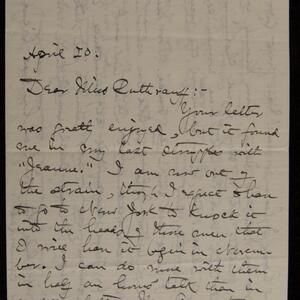 April 10.
Dear Miss Ruthrauff:-
Your letter
was greatly enjoyed, but it found
me in my last struggle with
"Jeanne." I am now out of
the strain, though I expect I have
to go to New York to knock it
into the heads of those men that
I will have it begin in November.
I can do more with them
in half an hour's talk than in